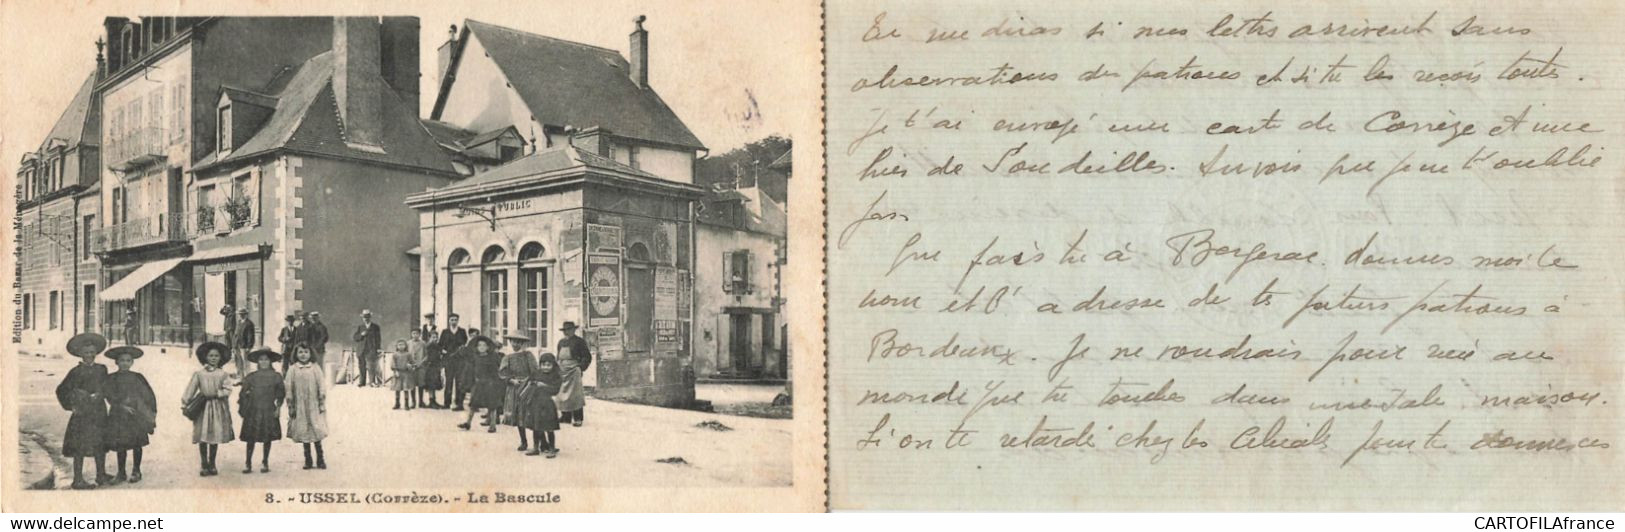 Edition du Bazar de la Ménagère
POIDS PUBLIC
8. - USSEL (Corrèze). - La Bascule
Tu me diras si mes lettres arrivent sans
observations des patrons et si tu les reçois toutes.
Je t'ai envoyé une carte de Corrèze et une
hier de Soudeilles. Tu vois que je ne t'oublie
pas
Que fais tu à Bergerac. donnes moi le
nom et l'adresse de tes futurs patrons à
Bordeaux. Je ne voudrais pour rien au
monde que tu touches dans une sale maison.
Si on te retarde chez les pour te donner ces
CARTOFILAfrance